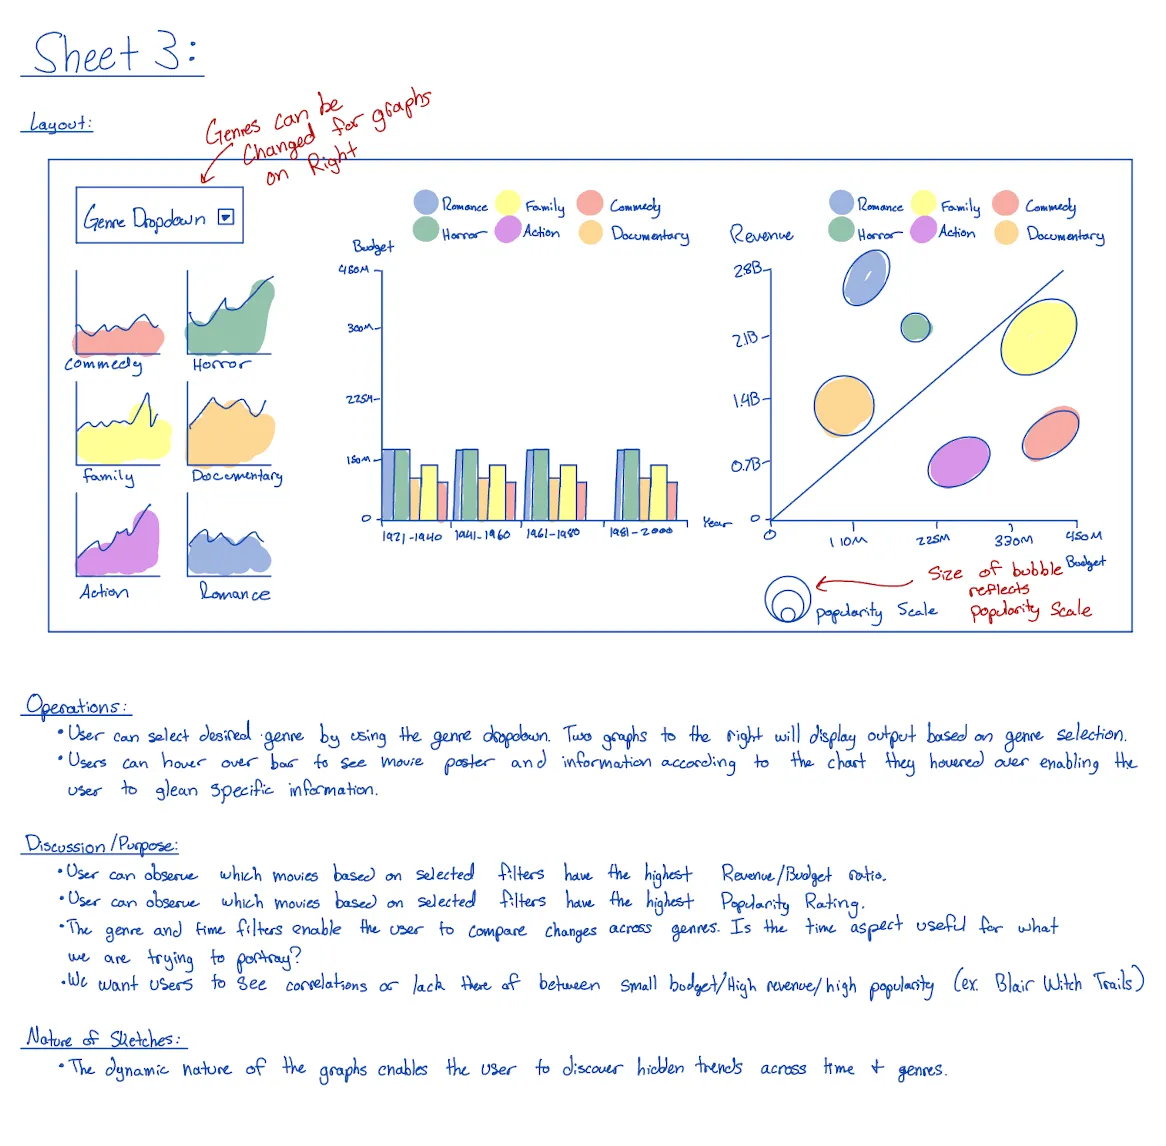 Sheet 3:
Layout:
Genres can be
Changed for graphs
on Right
Genre Dropdown
Commedy
Horror
Family
Documentary
Action
Romance
Romance
Family
Commedy
Horror
Action
Documentary
Budget
480M
300M
225M
150M
0
1921-1940
1941-1960
1961-1980
1981-2000
Year
Romance
Family
Commedy
Horror
Action
Documentary
Revenue
2.8B
2.1B
1.4B
0.7B
0
0
110M
225M
330M
450M
Budget
popularity Scale
Size of bubble
reflects
popularity Scale
Operations:
• User can select desired genre by using the genre dropdown. Two graphs to the right will display output based on genre selection.
• Users can hover over bar to see movie poster and information according to the chart they hovered over enabling the
user to glean specific information.
Discussion/Purpose:
• User can observe which movies based on selected filters have the highest Revenue/Budget ratio.
• User can observe which movies based on selected filters have the highest Popularity Rating.
• The genre and time filters enable the user to compare changes across genres. Is the time aspect useful for what
we are trying to portray?
• We want users to see correlations or lack there of between small budget/High revenue/high popularity (ex. Blair Witch Trails)
Nature of Sketches:
• The dynamic nature of the graphs enables the user to discover hidden trends across time + genres.